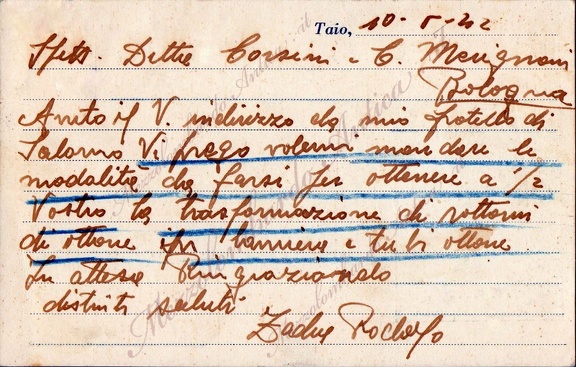 Taio, 10-5-42
Spett. Ditta Corsini e C. Mengnani
Bologna
Avuto il V. indirizzo da mio fratello di
Salorno Vi prego volermi mandare le
modalità da farsi per ottenere a ½
Vostro la trasformazione di rottami
di ottone in lamiere e tubi ottone
In attesa Ringraziando
distinti saluti
Rodolfo